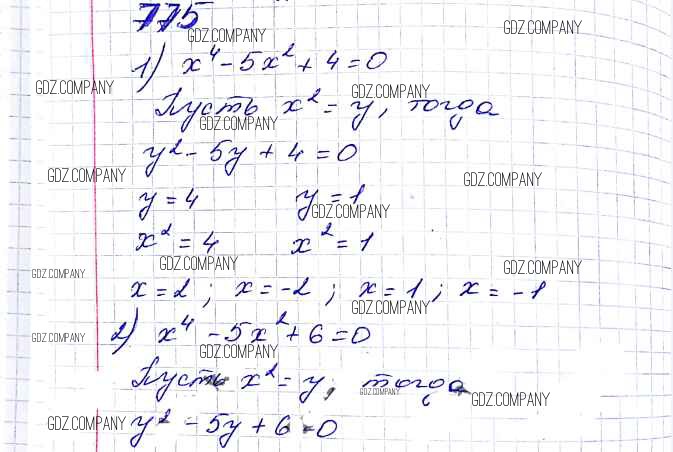 775
GDZ.COMPANY GDZ.COMPANY
1) x⁴ - 5x² + 4 = 0
GDZ.COMPANY GDZ.COMPANY
Пусть x² = y, тогда
GDZ.COMPANY
y² - 5y + 4 = 0
GDZ.COMPANY GDZ.COMPANY
y = 4 y = 1
GDZ.COMPANY
x² = 4 x² = 1
GDZ.COMPANY GDZ.COMPANY GDZ.COMPANY
x = 2 ; x = -2 ; x = 1 ; x = -1
GDZ.COMPANY
2) x⁴ - 5x² + 6 = 0
GDZ.COMPANY GDZ.COMPANY
Пусть x² = y, тогда
GDZ.COMPANY GDZ.COMPANY
GDZ.COMPANY
y² - 5y + 6 = 0